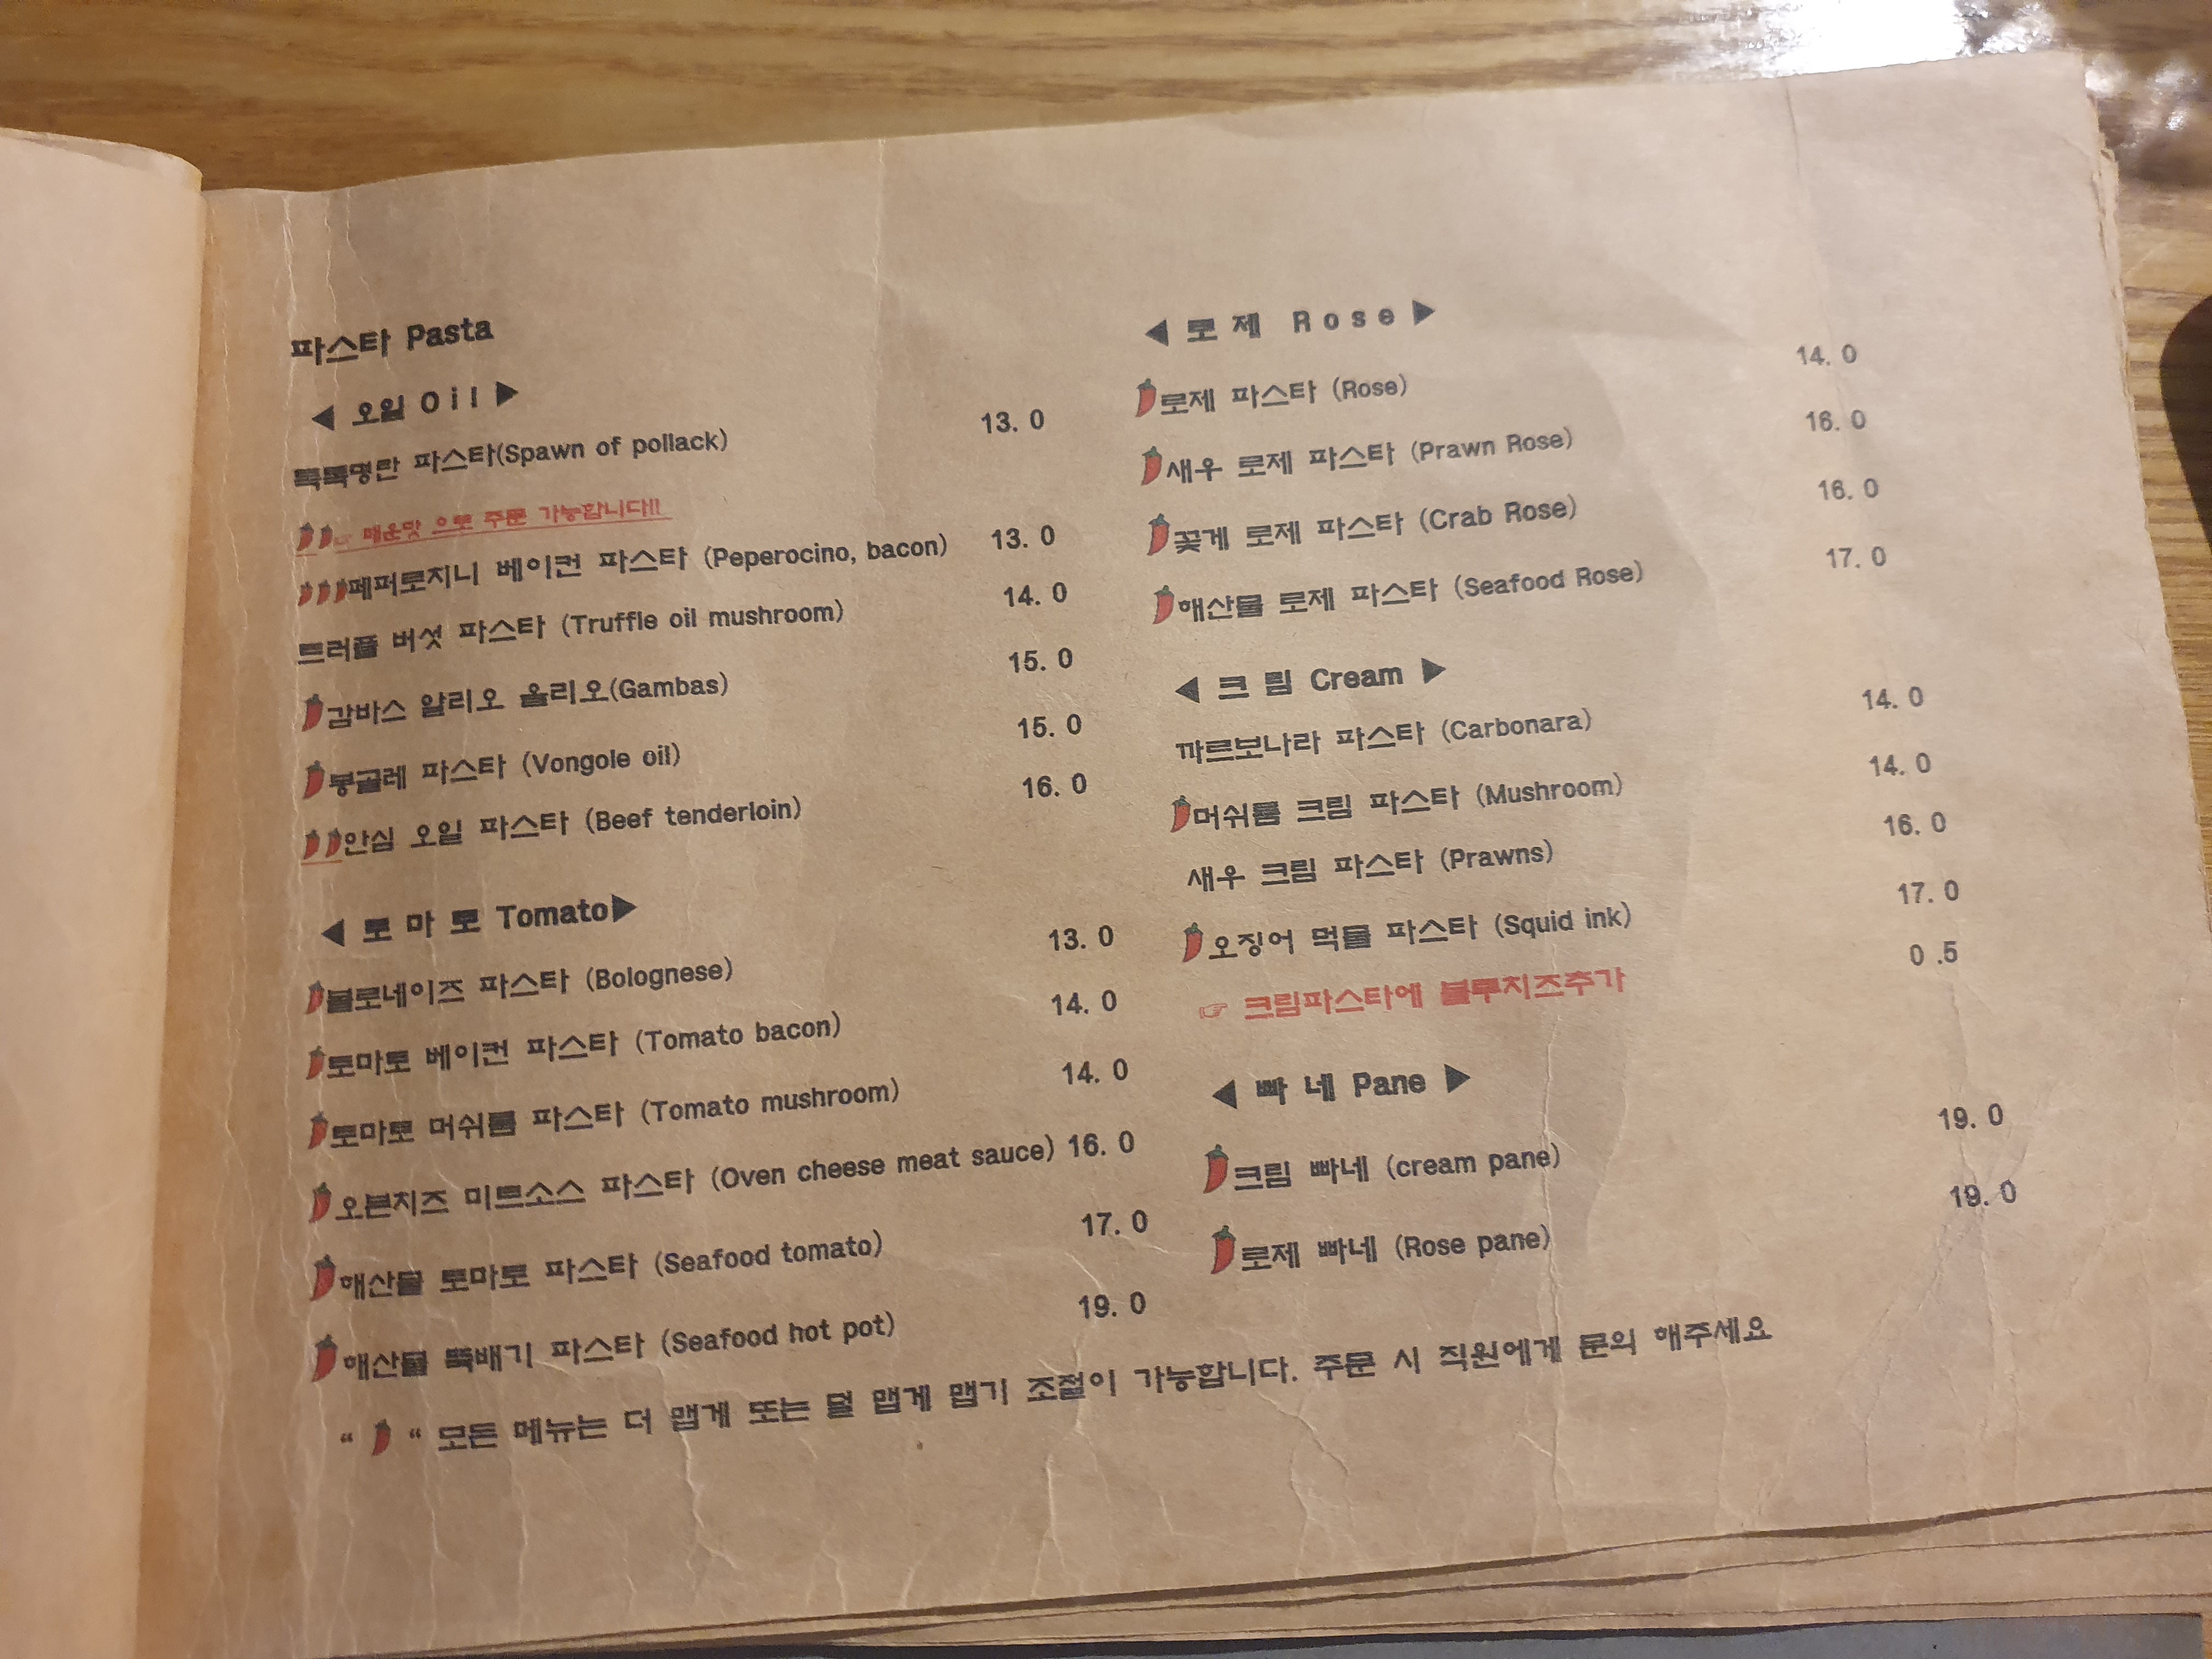 파스타 Pasta
◀ 오일 Oil ▶
톡톡명란 파스타(Spawn of pollack) 13. 0
☞ 매운맛 으로 주문 가능합니다!!
페퍼로치니 베이컨 파스타 (Peperocino, bacon) 13. 0
트러플 버섯 파스타 (Truffle oil mushroom) 14. 0
감바스 알리오 올리오(Gambas) 15. 0
봉골레 파스타 (Vongole oil) 15. 0
안심 오일 파스타 (Beef tenderloin) 16. 0
◀ 토 마 토 Tomato▶
볼로네이즈 파스타 (Bolognese) 13. 0
토마토 베이컨 파스타 (Tomato bacon) 14. 0
토마토 머쉬룸 파스타 (Tomato mushroom) 14. 0
오븐치즈 미트소스 파스타 (Oven cheese meat sauce) 16. 0
해산물 토마토 파스타 (Seafood tomato) 17. 0
해산물 뚝배기 파스타 (Seafood hot pot) 19. 0
◀ 로 제 Rose ▶
로제 파스타 (Rose) 14. 0
새우 로제 파스타 (Prawn Rose) 16. 0
꽃게 로제 파스타 (Crab Rose) 16. 0
해산물 로제 파스타 (Seafood Rose) 17. 0
◀ 크 림 Cream ▶
까르보나라 파스타 (Carbonara) 14. 0
머쉬룸 크림 파스타 (Mushroom) 14. 0
새우 크림 파스타 (Prawns) 16. 0
오징어 먹물 파스타 (Squid ink) 17. 0
☞ 크림파스타에 블루치즈추가 0 .5
◀ 빠 네 Pane ▶
크림 빠네 (cream pane) 19. 0
로제 빠네 (Rose pane) 19. 0
“ “ 모든 메뉴는 더 맵게 또는 덜 맵게 맵기 조절이 가능합니다. 주문 시 직원에게 문의 해주세요